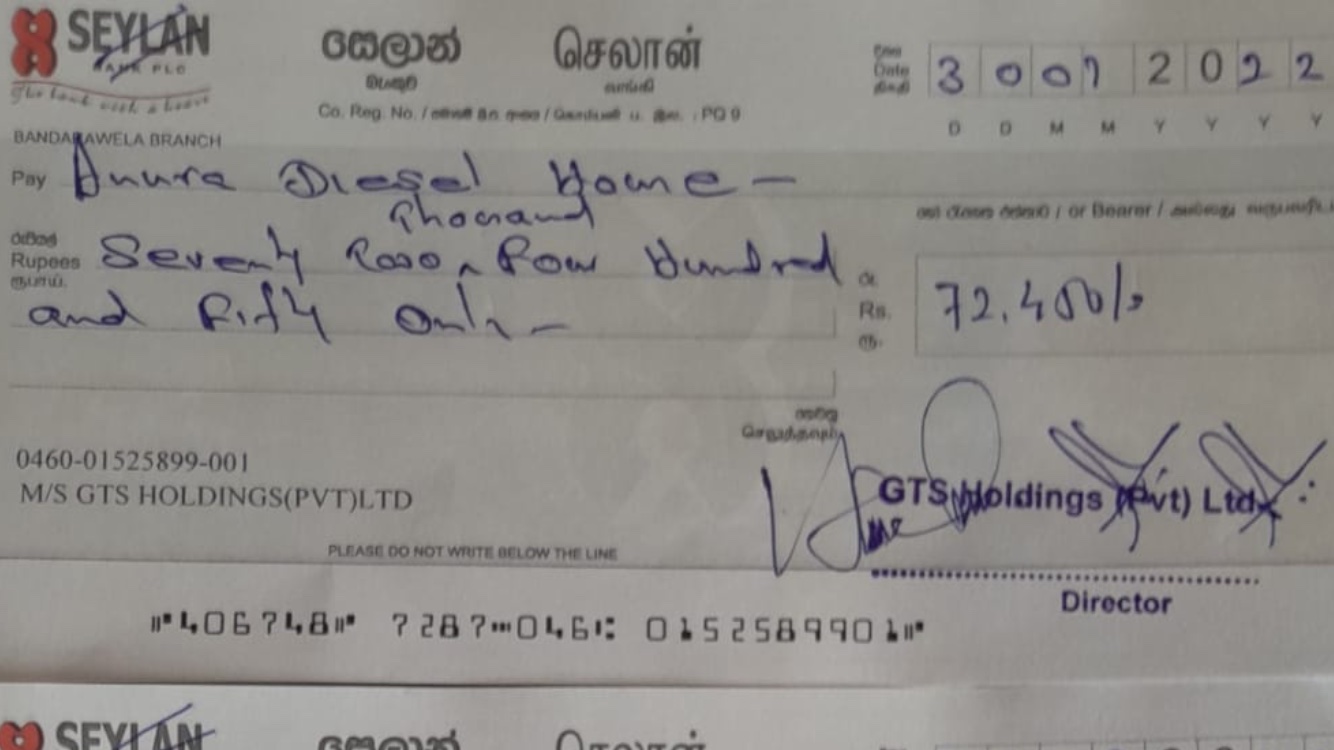 SEYLAN
BANK PLC
The bank with a heart
සෙලාන් செலான்
බැංකුව வங்கி
Co. Reg. No. / PQ 9
Date 3 0 0 7 2 0 2 2
D D M M Y Y Y Y
BANDARAWELA BRANCH
Pay Anura Diesel Home —
or Bearer /
Thousand
රුපියල්
Rupees Seventy Two Four Hundred
ரூபாய்
and Fifty Only —
රු.
Rs. 72.450/=
ரூ.
0460-01525899-001
M/S GTS HOLDINGS(PVT)LTD
GTS Holdings (Pvt) Ltd.
PLEASE DO NOT WRITE BELOW THE LINE
Director
⑈406748⑈ 7287⑉046⑆ 0152589901⑈
SEYLAN
සෙලාන් செலான்